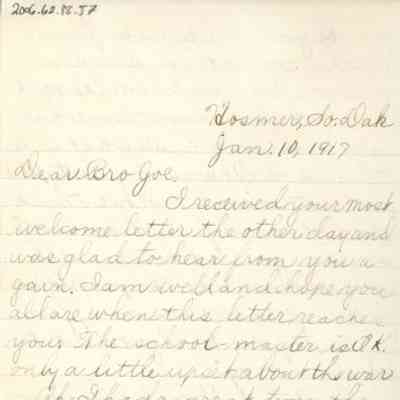 2006.62.88.57
Hosmer, So. Dak
Jan. 10, 1917
Dear Bro Joe.
I received your most
welcome letter the other day and
was glad to hear from you a-
gain. I am well and hope you
all are when this letter reaches
your. The school-master is O.K.
only a little upset about the war
I had a great time the